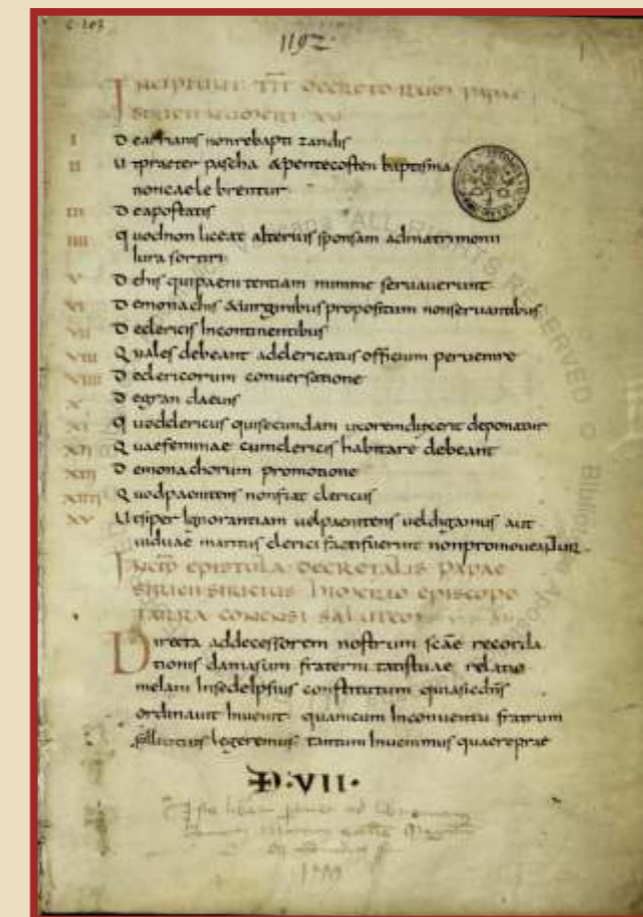 C. 107
1192.
INCIPIUNT TIT DECRETORUM PAPAE
SIRICII NUMERI XV
I D earrianis nonrebapti zandis
II U tpraeter pascha &pentecosten baptisma
noncaele brentur
III D eapostatis
IIII q uodnon liceat alterius sponsam admatrimonii
Iura sortiri
V D ehis quipaeni tentiam minime servaverunt
VI D emonachis &virginibus propositum nonservantibus
VII D eclericis Incontinentibus
VIII Q uales debeant adclericatus officium pervenire
VIIII D eclericorum conversatione
X D egran daevis
XI q uodclericus quisecundam uxoremduxerit deponatur
XII Q uaefeminae cumclericis habitare debeant
XIII D emonachorum promotione
XIIII Q uodpaenitens nonfiat clericus
XV U tsiper Ignorantiam velpaenitens veldigamus aut
viduae maritus clerici factifuerint nonpromoveantur.
INCIP EPISTULA DECRETALIS PAPAE
SIRICII SIRICIUS HIMERIO EPISCOPO
TARRA CONENSI SALUTEM
D irecta addecessorem nostrum scae recorda
tionis damasum fraterni tatistuae relatio
meiam Insedeipsius constitutum quiasicdns
ordinavit Invenit quamcum Inconventu fratrum
sollicitius legeremus tantum Invenimus quaerepre
D·VII·